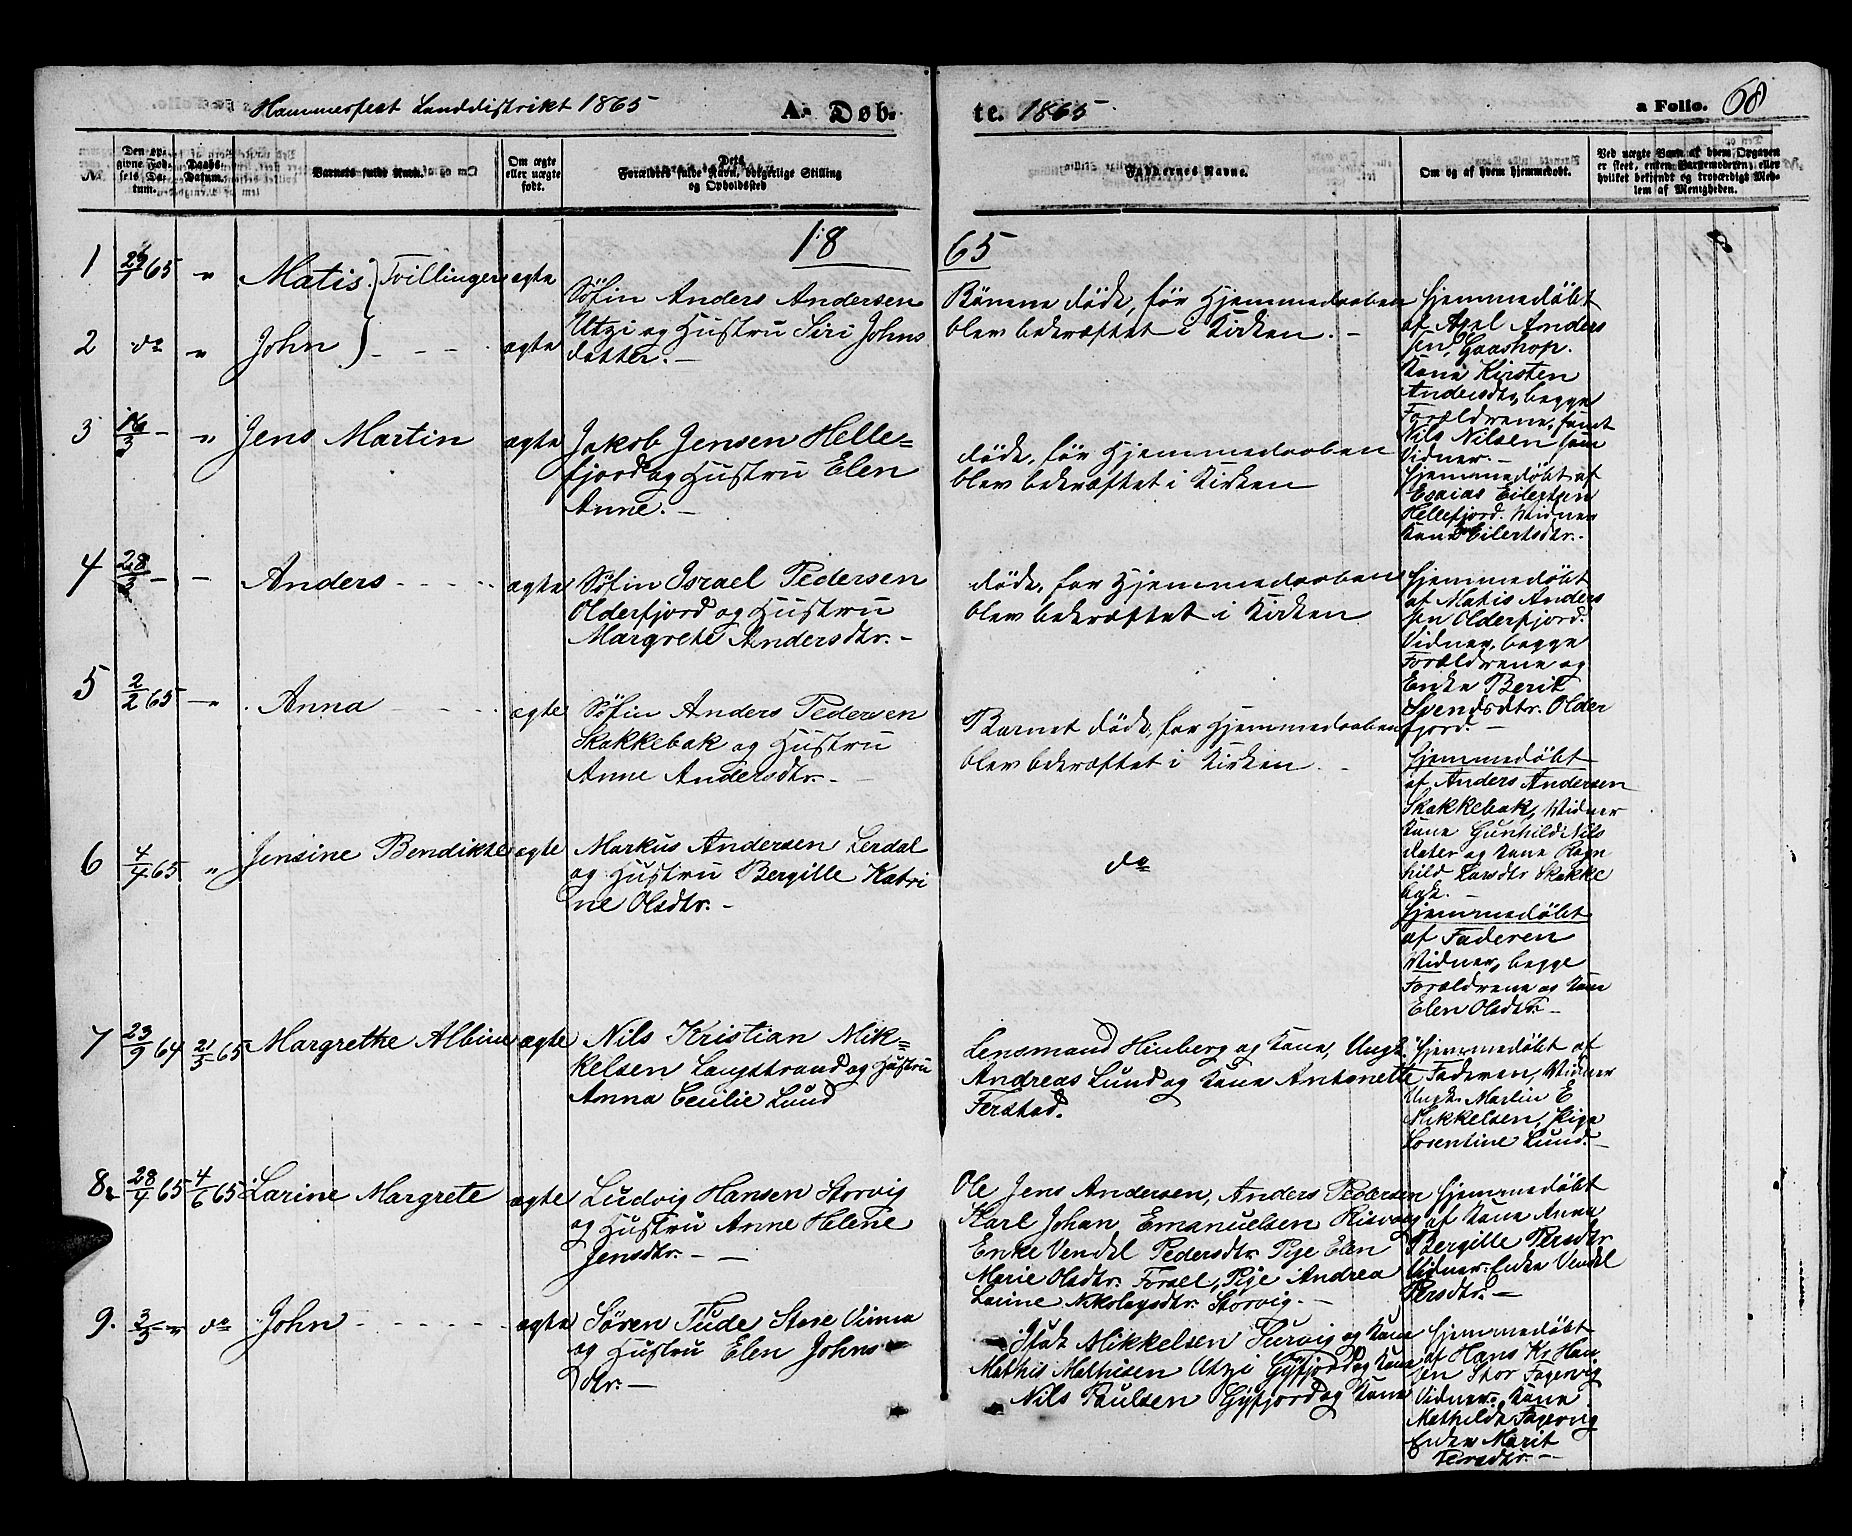 Hammerfest Landdistrikt 1865
A. Døb-
te. 1865
a Folio. 68
No.
Den opgivne Fødsels Datum.
Daabs-Datum.
Barnets fulde Navn.
Om ægte eller uægte født.
Dets Forældres fulde Navn, borgerlige Stilling og Opholdssted
Faddernes Navne.
Om og af hvem hjemmedøbt.
Ved uægte Barn af hvem Opgaven er skeet, enten Barnemoderen, eller hvilket bekjendt og troværdigt Medlem af Menigheden.
18 65
1 65 " Matis } Tvillinger ægte
Søfin Anders Andersen
Utzi og Hustru Siri Johns
datter. -
Børnene døde, før Hjemmedaaben
blev bekræftet i Kirken. -
Hjemmedøbt
af Axel Anders
sen, Gaashop.
Kone Kirsten
Andersdtr, begge
Forældrene, samt
Nils Nilsen som
Vidner. -
2 do " John } - - - ægte
3 16/3 - " Jens Martin ægte
Jakob Jensen Helle=
fjord og Hustru Elen
Anne. -
døde, før Hjemmedaaben
blev bekræftet i Kirken
Hjemmedøbt af
Esaias Eilertsen
Hellefjord. Widner
Kone Eilertsdtr. -
4 28/3 - - Anders - - - - ægte
Søfin Israel Pedersen
Olderfjord og Hustru
Margrete Andersdtr. -
døde, før Hjemmedaaben
blev bekræftet i Kirken
Hjemmedøbt
af Matis Anders
sen Olderfjord.
Vidner, begge
Forældrene og
Enke Berit
Svendsdtr. Older
fjord. -
5 2/2 65 - " Anna - - - - ægte
Søfin Anders Pedersen
Skakkebak og Hustru
Anne Andersdtr. -
Barnet døde, før Hjemmedaaben
blev bekræftet i Kirken. -
Hjemmedøbt
af Anders Andersen
Skakkebak, Widner
Kone Gunhild Nils
dater og Kone Ragn
hild Larsdtr Skakke
bak. -
6 4/4 65 " Jensine Bendikte ægte
Markus Andersen Lerdal
og Hustru Bergitte Katri
ne Olsdtr. -
do
Hjemmedøbt
af Faderen
Widner, begge
Forældrene og Kone
Elen Olsdtr. -
7 23/9 64 21/5 65 Margrethe Albine ægte
Nils Kristian Mik=
kelsen Langstrand og Hustru
Anna Cecilie Lund
Lensmand Hinberg og Kone, Ungk.
Andreas Lund og Kone Antonette
Ferstad.
Hjemmedøbt af
Faderen, Widner
Ungk. Martin E
Mikkelsen, Pige
Lorentine Lund. -
8. 28/4 65 4/6 65 Larine Margrete ægte
Ludvig Hansen Storvig
og Hustru Anne Helene
Jensdtr. -
Ole Jens Andersen, Anders Pedersen
Karl Johan Emanuelsen Risvaag
Enke Vendel Pedersdtr. Pige Elen
Marie Olsdtr. Forsøl, Pige Andrea
Larine Nikolaysdtr. Storvig. -
Hjemmedøbt
af Kone Anne
Bergitte Persdtr
Vidner: Enke Vendel
Persdtr. -
9. 3/3 - " do John - - - - - - ægte
Søren Tude Store Vinna
og Hustru Elen Johns
dtr. -
Isak Mikkelsen Turvig og Kone
Mathis Mathisen Utzi Gyfjord og Kone
Nils Paulsen Gyfjord og Kone
Hjemmedøbt
af Hans Kr. Han
sen Stor Fagervig
Vidner: Kone
Mathilde Fagervig
Enke Marit
Persdtr. -